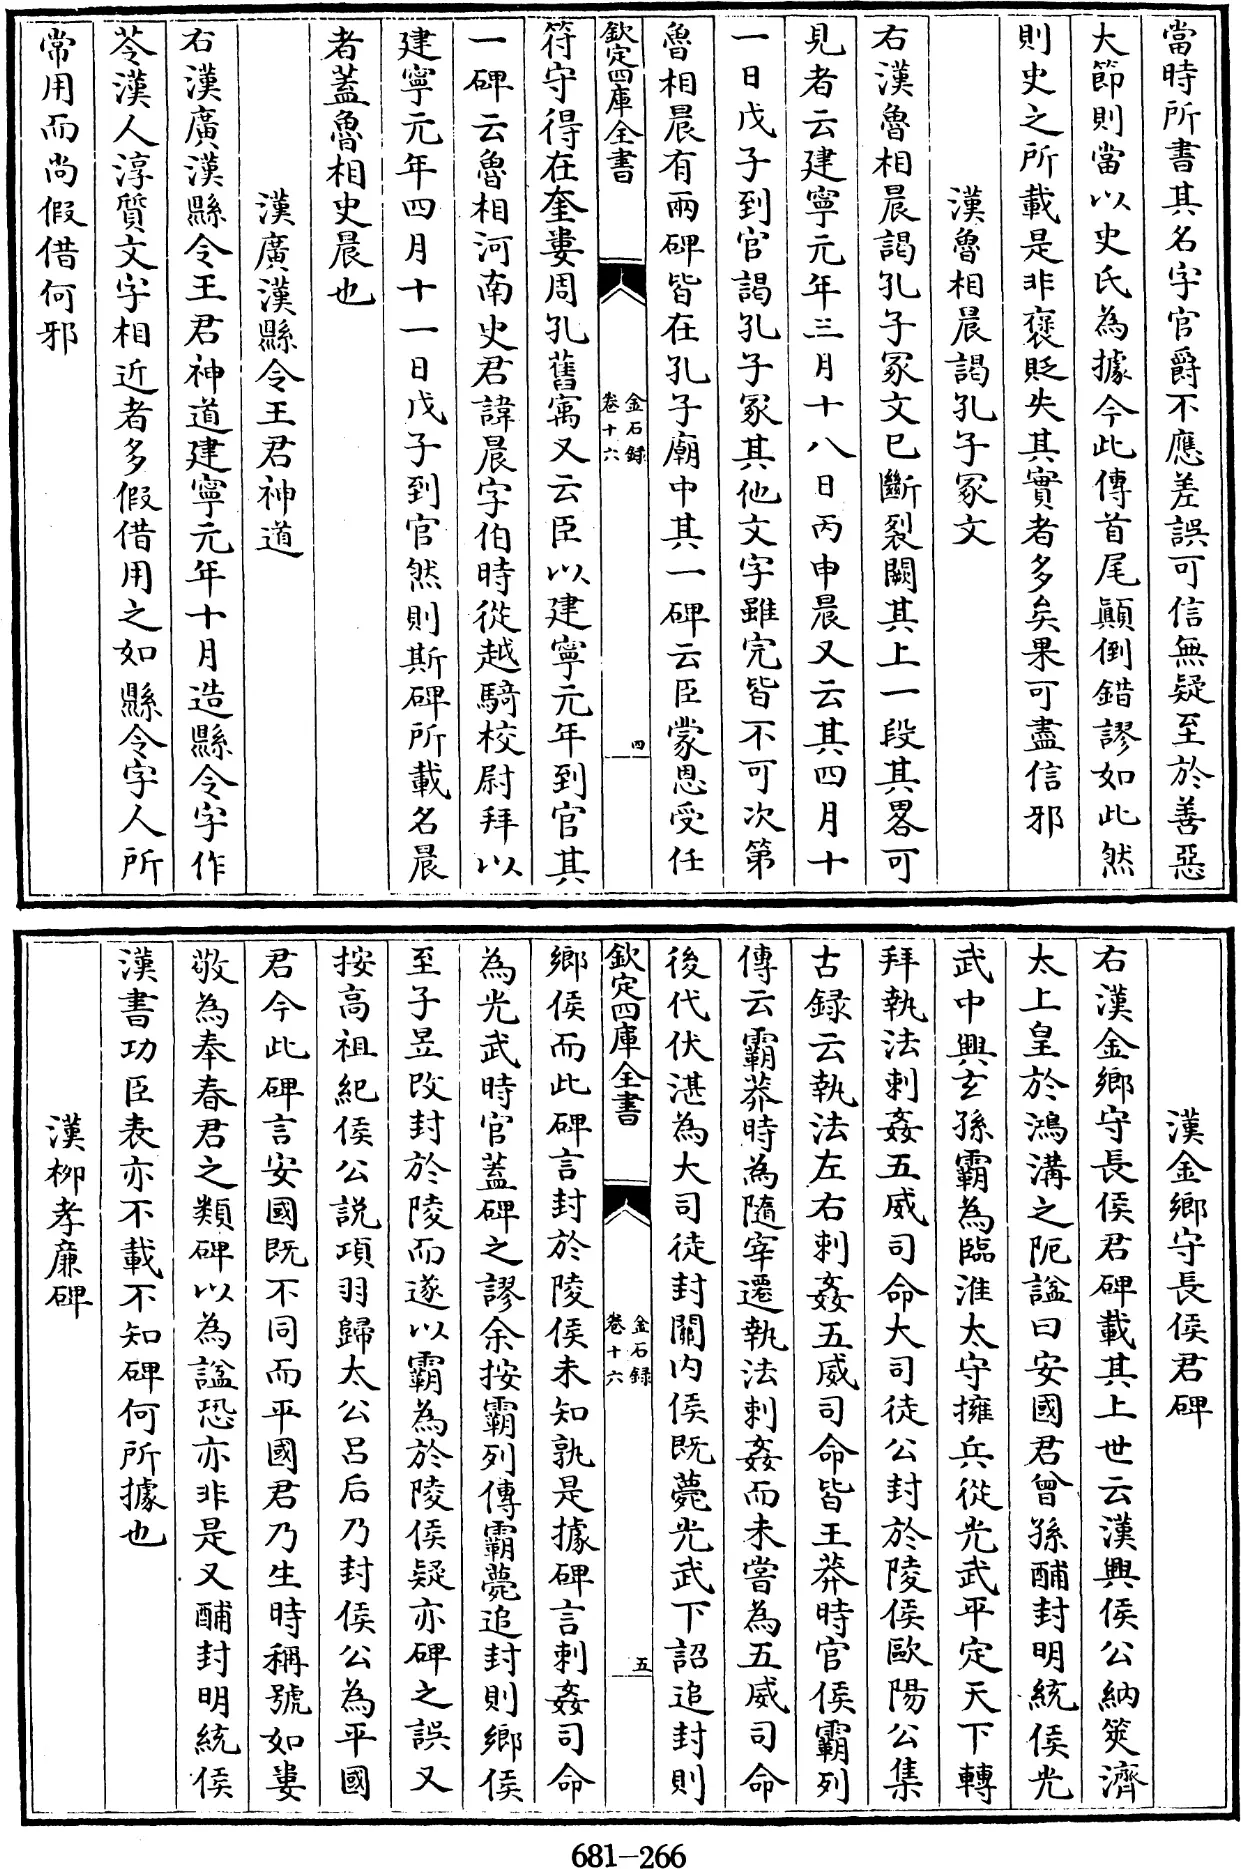 當時所書其名字官爵不應差誤可信無疑至於善惡
大節則當以史氏為據今此傳首尾顛倒錯謬如此然
則史之所載是非褒貶失其實者多矣果可盡信邪
漢魯相晨謁孔子冢文
右漢魯相晨謁孔子冢文已斷裂闕其上一段其畧可
見者云建寧元年三月十八日丙申晨又云其四月十
一日戊子到官謁孔子冢其他文字雖完皆不可次第
魯相晨有兩碑皆在孔子廟中其一碑云臣蒙恩受任
欽定四庫全書
金石録
卷十六
四
符守得在奎婁周孔舊寓又云臣以建寧元年到官其
一碑云魯相河南史君諱晨字伯時從越騎校尉拜以
建寧元年四月十一日戊子到官然則斯碑所載名晨
者蓋魯相史晨也
漢廣漢縣令王君神道
右漢廣漢縣令王君神道建寧元年十月造縣令字作
苓漢人淳質文字相近者多假借用之如縣令字人所
常用而尚假借何邪
漢金鄉守長侯君碑
右漢金鄉守長侯君碑載其上世云漢興侯公納筴濟
太上皇於鴻溝之阨諡曰安國君曾孫酺封明統侯光
武中興玄孫霸為臨淮太守擁兵從光武平定天下轉
拜執法刺姦五威司命大司徒公封於陵侯歐陽公集
古録云執法左右刺姦五威司命皆王莽時官侯霸列
傳云霸莽時為隨宰遷執法刺姦而未嘗為五威司命
後代伏湛為大司徒封關内侯既薨光武下詔追封則
欽定四庫全書
金石録
卷十六
五
鄉侯而此碑言封於陵侯未知孰是據碑言刺姦司命
為光武時官蓋碑之謬余按霸列傳霸薨追封則鄉侯
至子昱改封於陵而遂以霸為於陵侯疑亦碑之誤又
按高祖紀侯公説項羽歸太公呂后乃封侯公為平國
君今此碑言安國既不同而平國君乃生時稱號如婁
敬為奉春君之類碑以為諡恐亦非是又酺封明統侯
漢書功臣表亦不載不知碑何所據也
漢柳孝廉碑
681-266